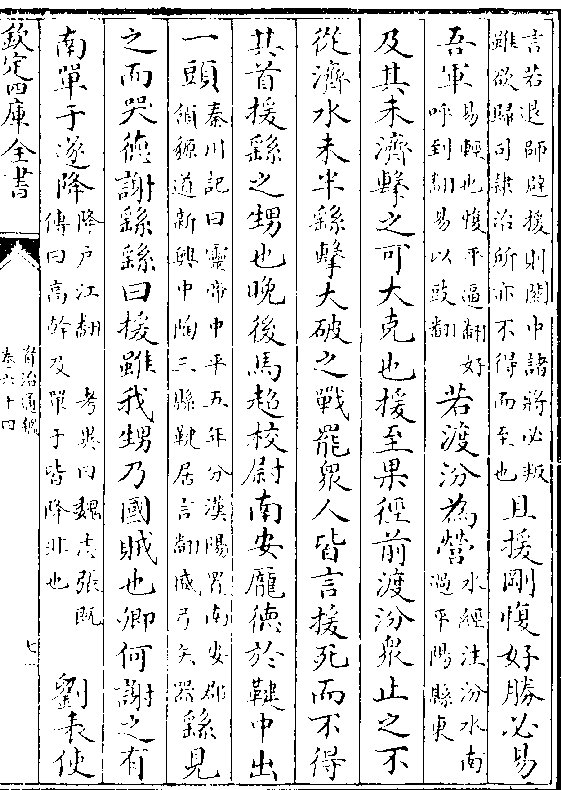 言若退師避援則關中諸將必叛
雖欲歸司隷治所亦不得而至也
且援剛愎好勝必易
吾軍
易輕也愎平逼翻好
呼到翻易以豉翻
若渡汾為營
水經注汾水南
過平陽縣東
及其未濟擊之可大克也援至果徑前渡汾衆止之不
從濟水未半繇擊大破之戰罷衆人皆言援死而不得
其首援繇之甥也晚後馬超校尉南安龐德於鞬中出
一頭
秦川記曰靈帝中平五年分漢陽置南安郡
領獂道新興中陶三縣鞬居言翻盛弓矢器
繇見
之而哭德謝繇繇曰援雖我甥乃國賊也卿何謝之有
南單于遂降
降户江翻 考異曰魏志張既
傳曰高幹及單于皆降非也
劉表使
欽定四庫全書
資治通鑑
卷六十四
七